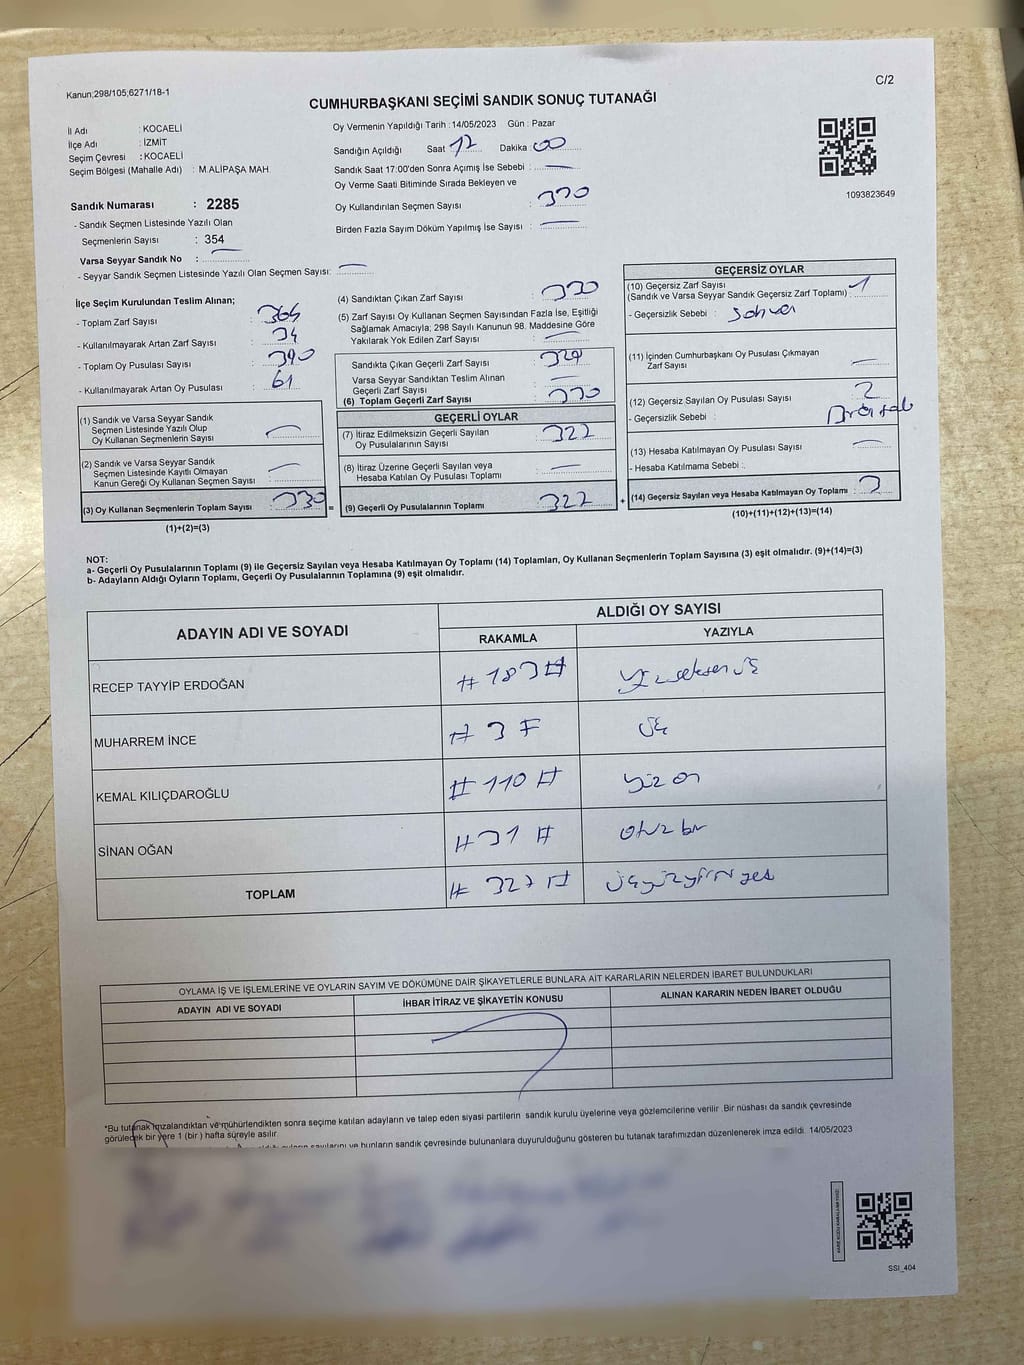 Kanun;298/105;6271/18-1
C/2
CUMHURBAŞKANI SEÇİMİ SANDIK SONUÇ TUTANAĞI
İl Adı : KOCAELİ
İlçe Adı : İZMİT
Seçim Çevresi : KOCAELİ
Seçim Bölgesi (Mahalle Adı) : M.ALİPAŞA MAH
Sandık Numarası : 2285
- Sandık Seçmen Listesinde Yazılı Olan
Seçmenlerin Sayısı : 354
Varsa Seyyar Sandık No :
- Seyyar Sandık Seçmen Listesinde Yazılı Olan Seçmen Sayısı:
Oy Vermenin Yapıldığı Tarih :14/05/2023 Gün : Pazar
Sandığın Açıldığı Saat 17 Dakika 00
Sandık Saat 17:00'den Sonra Açımış İse Sebebi :
Oy Verme Saati Bitiminde Sırada Bekleyen ve
Oy Kullandırılan Seçmen Sayısı : 330
Birden Fazla Sayım Döküm Yapılmış İse Sayısı :
1093823649
İlçe Seçim Kurulundan Teslim Alınan;
- Toplam Zarf Sayısı : 364
- Kullanılmayarak Artan Zarf Sayısı : 34
- Toplam Oy Pusulası Sayısı : 390
- Kullanılmayarak Artan Oy Pusulası : 61
(1) Sandık ve Varsa Seyyar Sandık
Seçmen Listesinde Yazılı Olup
Oy Kullanan Seçmenlerin Sayısı
(2) Sandık ve Varsa Seyyar Sandık
Seçmen Listesinde Kayıtlı Olmayan
Kanun Gereği Oy Kullanan Seçmen Sayısı
(3) Oy Kullanan Seçmenlerin Toplam Sayısı : 330 =
(1)+(2)=(3)
(4) Sandıktan Çıkan Zarf Sayısı : 330
(5) Zarf Sayısı Oy Kullanan Seçmen Sayısından Fazla İse, Eşitliği
Sağlamak Amacıyla; 298 Sayılı Kanunun 98. Maddesine Göre
Yakılarak Yok Edilen Zarf Sayısı :
Sandıkta Çıkan Geçerli Zarf Sayısı : 329
Varsa Seyyar Sandıktan Teslim Alınan
Geçerli Zarf Sayısı :
(6) Toplam Geçerli Zarf Sayısı : 330
GEÇERLİ OYLAR
(7) İtiraz Edilmeksizin Geçerli Sayılan
Oy Pusulalarının Sayısı : 327
(8) İtiraz Üzerine Geçerli Sayılan veya
Hesaba Katılan Oy Pusulası Toplamı :
(9) Geçerli Oy Pusulalarının Toplamı : 327 +
GEÇERSİZ OYLAR
(10) Geçersiz Zarf Sayısı
(Sandık ve Varsa Seyyar Sandık Geçersiz Zarf Toplamı) : 1
- Geçersizlik Sebebi :
(11) İçinden Cumhurbaşkanı Oy Pusulası Çıkmayan
Zarf Sayısı
(12) Geçersiz Sayılan Oy Pusulası Sayısı : 2
- Geçersizlik Sebebi :
(13) Hesaba Katılmayan Oy Pusulası Sayısı
- Hesaba Katılmama Sebebi :
(14) Geçersiz Sayılan veya Hesaba Katılmayan Oy Toplamı : 3
(10)+(11)+(12)+(13)=(14)
NOT:
a- Geçerli Oy Pusulalarının Toplamı (9) ile Geçersiz Sayılan veya Hesaba Katılmayan Oy Toplamı (14) Toplamları, Oy Kullanan Seçmenlerin Toplam Sayısına (3) eşit olmalıdır. (9)+(14)=(3)
b- Adayların Aldığı Oyların Toplamı, Geçerli Oy Pusulalarının Toplamına (9) eşit olmalıdır.
ADAYIN ADI VE SOYADI ALDIĞI OY SAYISI
RAKAMLA YAZIYLA
RECEP TAYYİP ERDOĞAN # 183 # Yüzseksen üç
MUHARREM İNCE # 3 # üç
KEMAL KILIÇDAROĞLU # 110 # yüz on
SİNAN OĞAN # 31 # otuz bir
TOPLAM # 327 # üçyüzyirmi yedi
OYLAMA İŞ VE İŞLEMLERİNE VE OYLARIN SAYIM VE DÖKÜMÜNE DAİR ŞİKAYETLERLE BUNLARA AİT KARARLARIN NELERDEN İBARET BULUNDUKLARI
ADAYIN ADI VE SOYADI İHBAR İTİRAZ VE ŞİKAYETİN KONUSU ALINAN KARARIN NEDEN İBARET OLDUĞU
*Bu tutanak imzalandıktan ve mühürlendikten sonra seçime katılan adayların ve talep eden siyasi partilerin sandık kurulu üyelerine veya gözlemcilerine verilir .Bir nüshası da sandık çevresinde
görülecek bir yere 1 (bir ) hafta süreyle asılır.
sayılarını ve bunların sandık çevresinde bulunanlara duyurulduğunu gösteren bu tutanak tarafımızdan düzenlenerek imza edildi. 14/05/2023
SSI_404